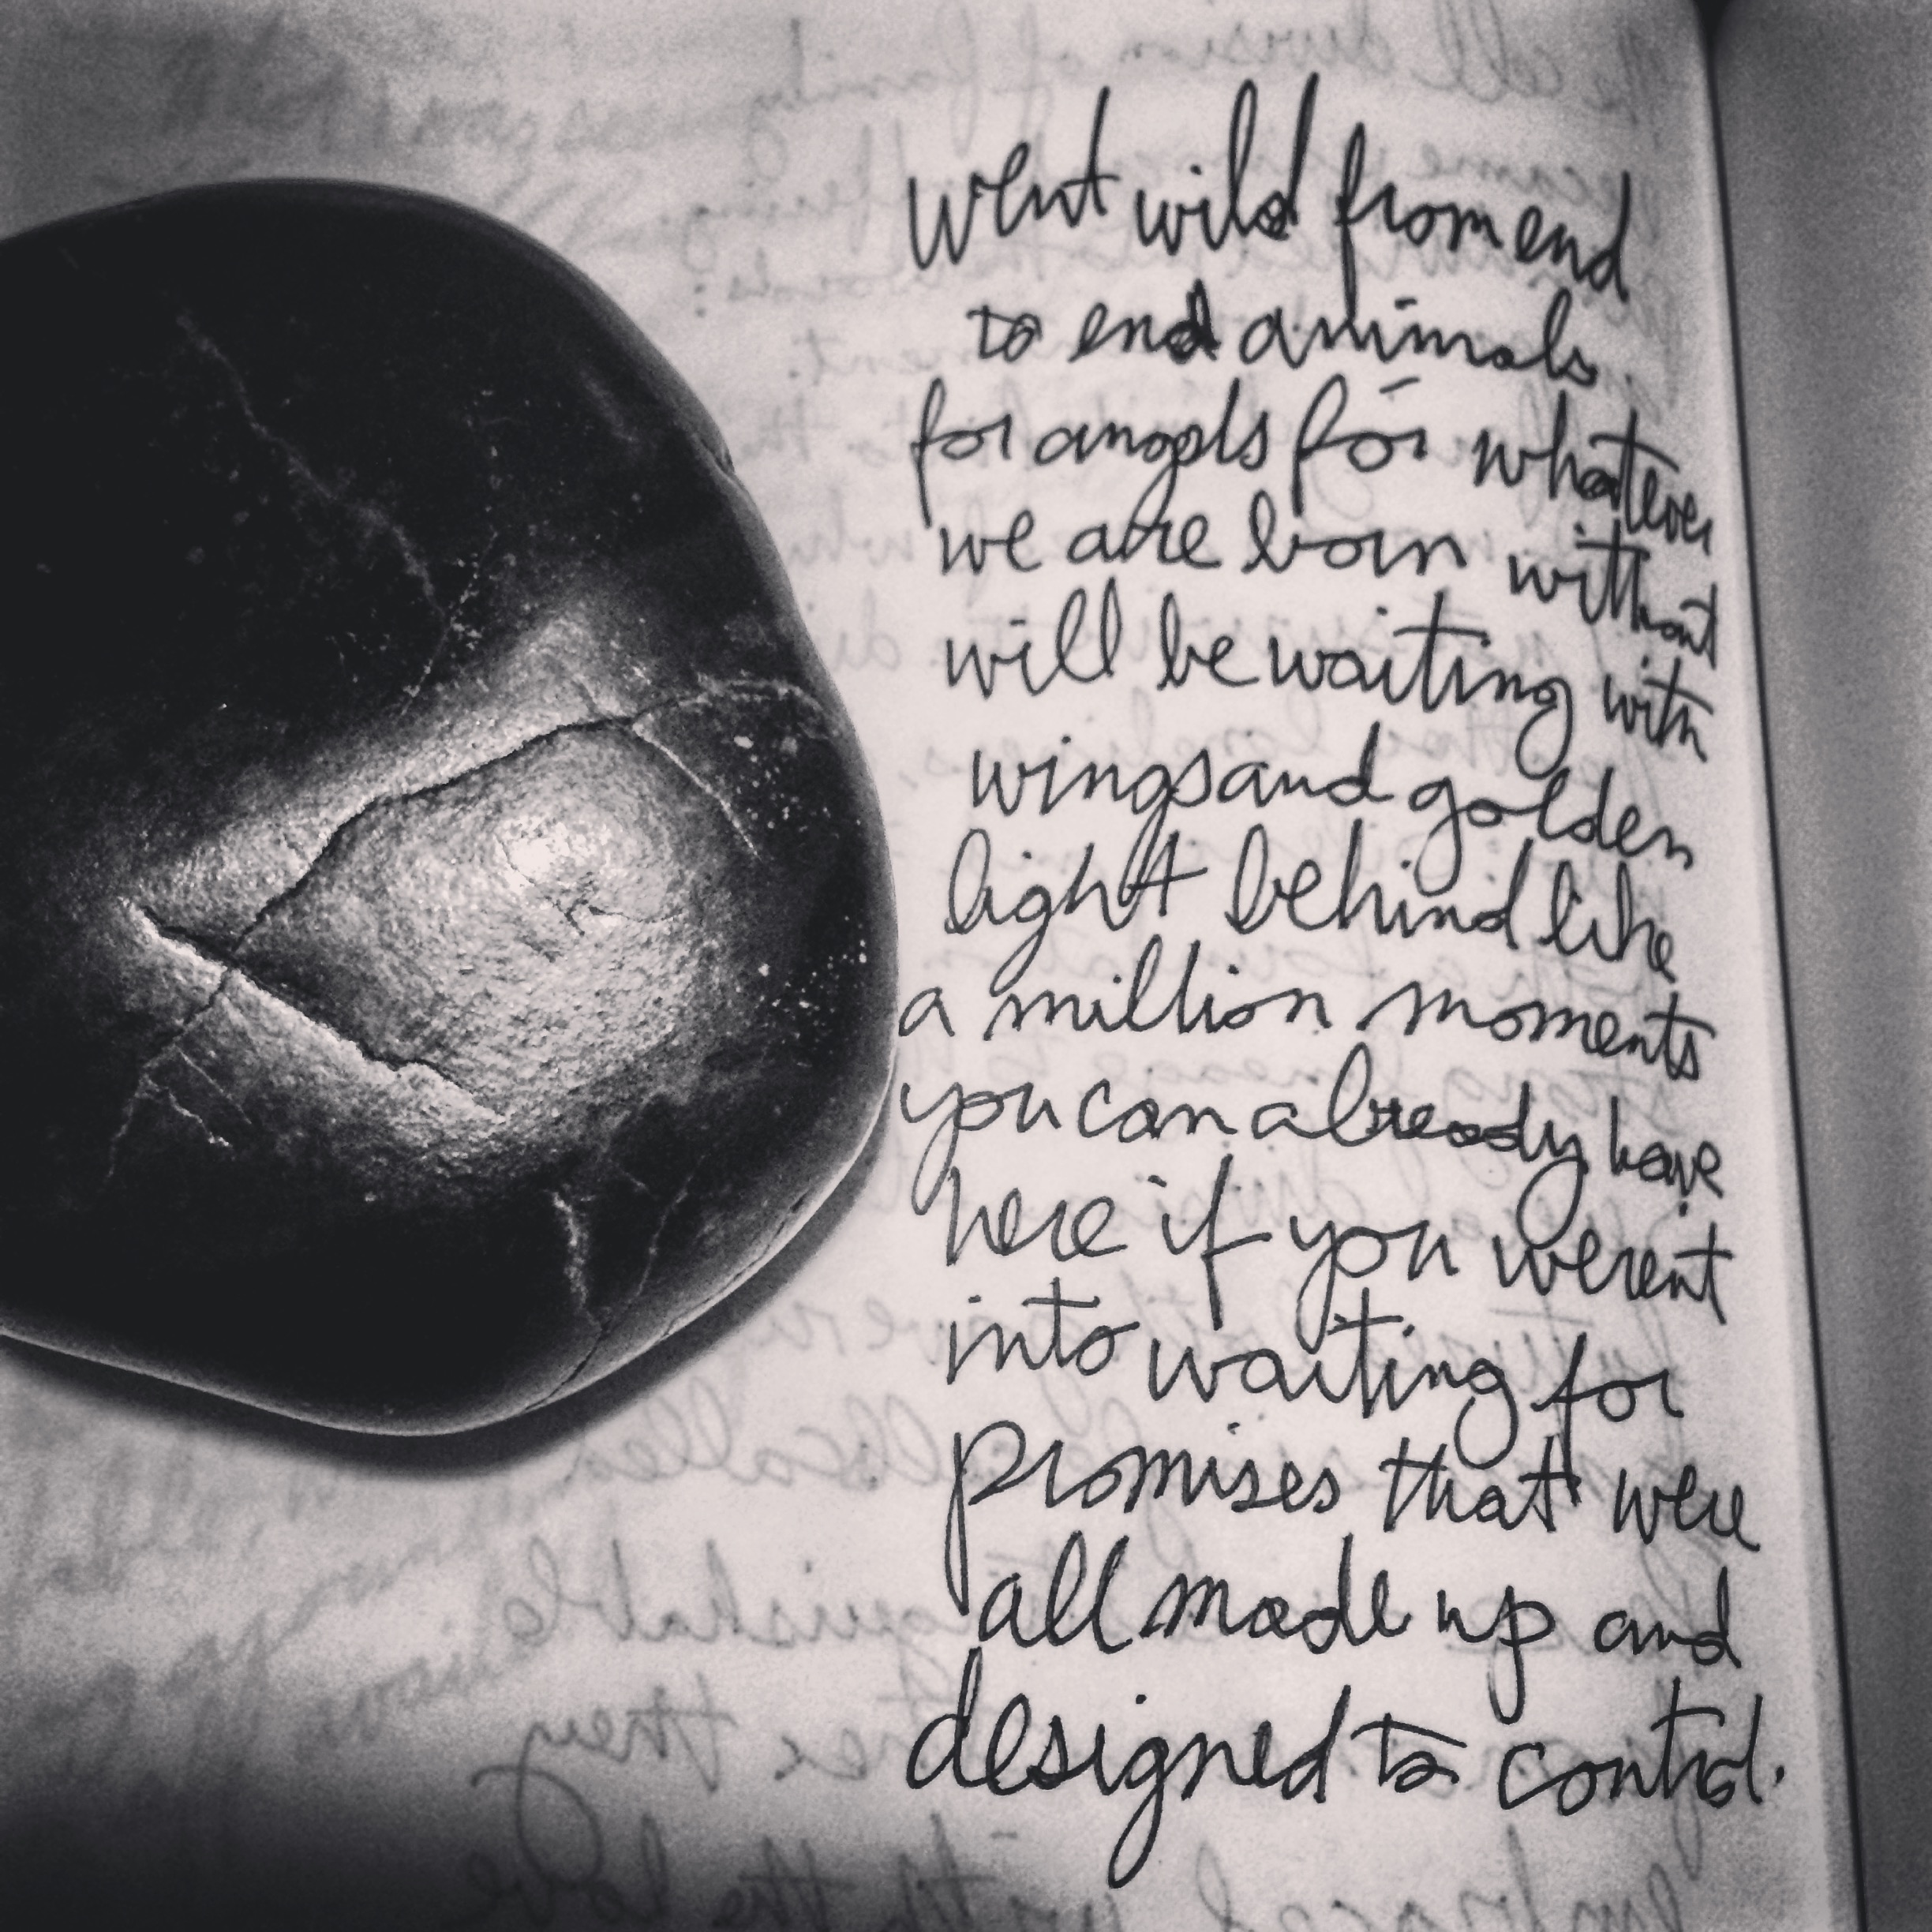 went wild from end
to end animals
for angels for whatever
we are born without
will be waiting with
wings and golden
light behind like
a million moments
you can already have
here if you werent
into waiting for
promises that were
all made up and
designed to control.